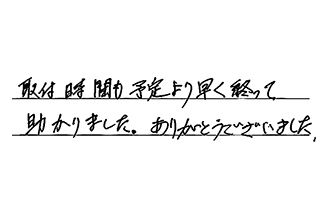 取付時間も予定より早く終って
助かりました。ありがとうございました。